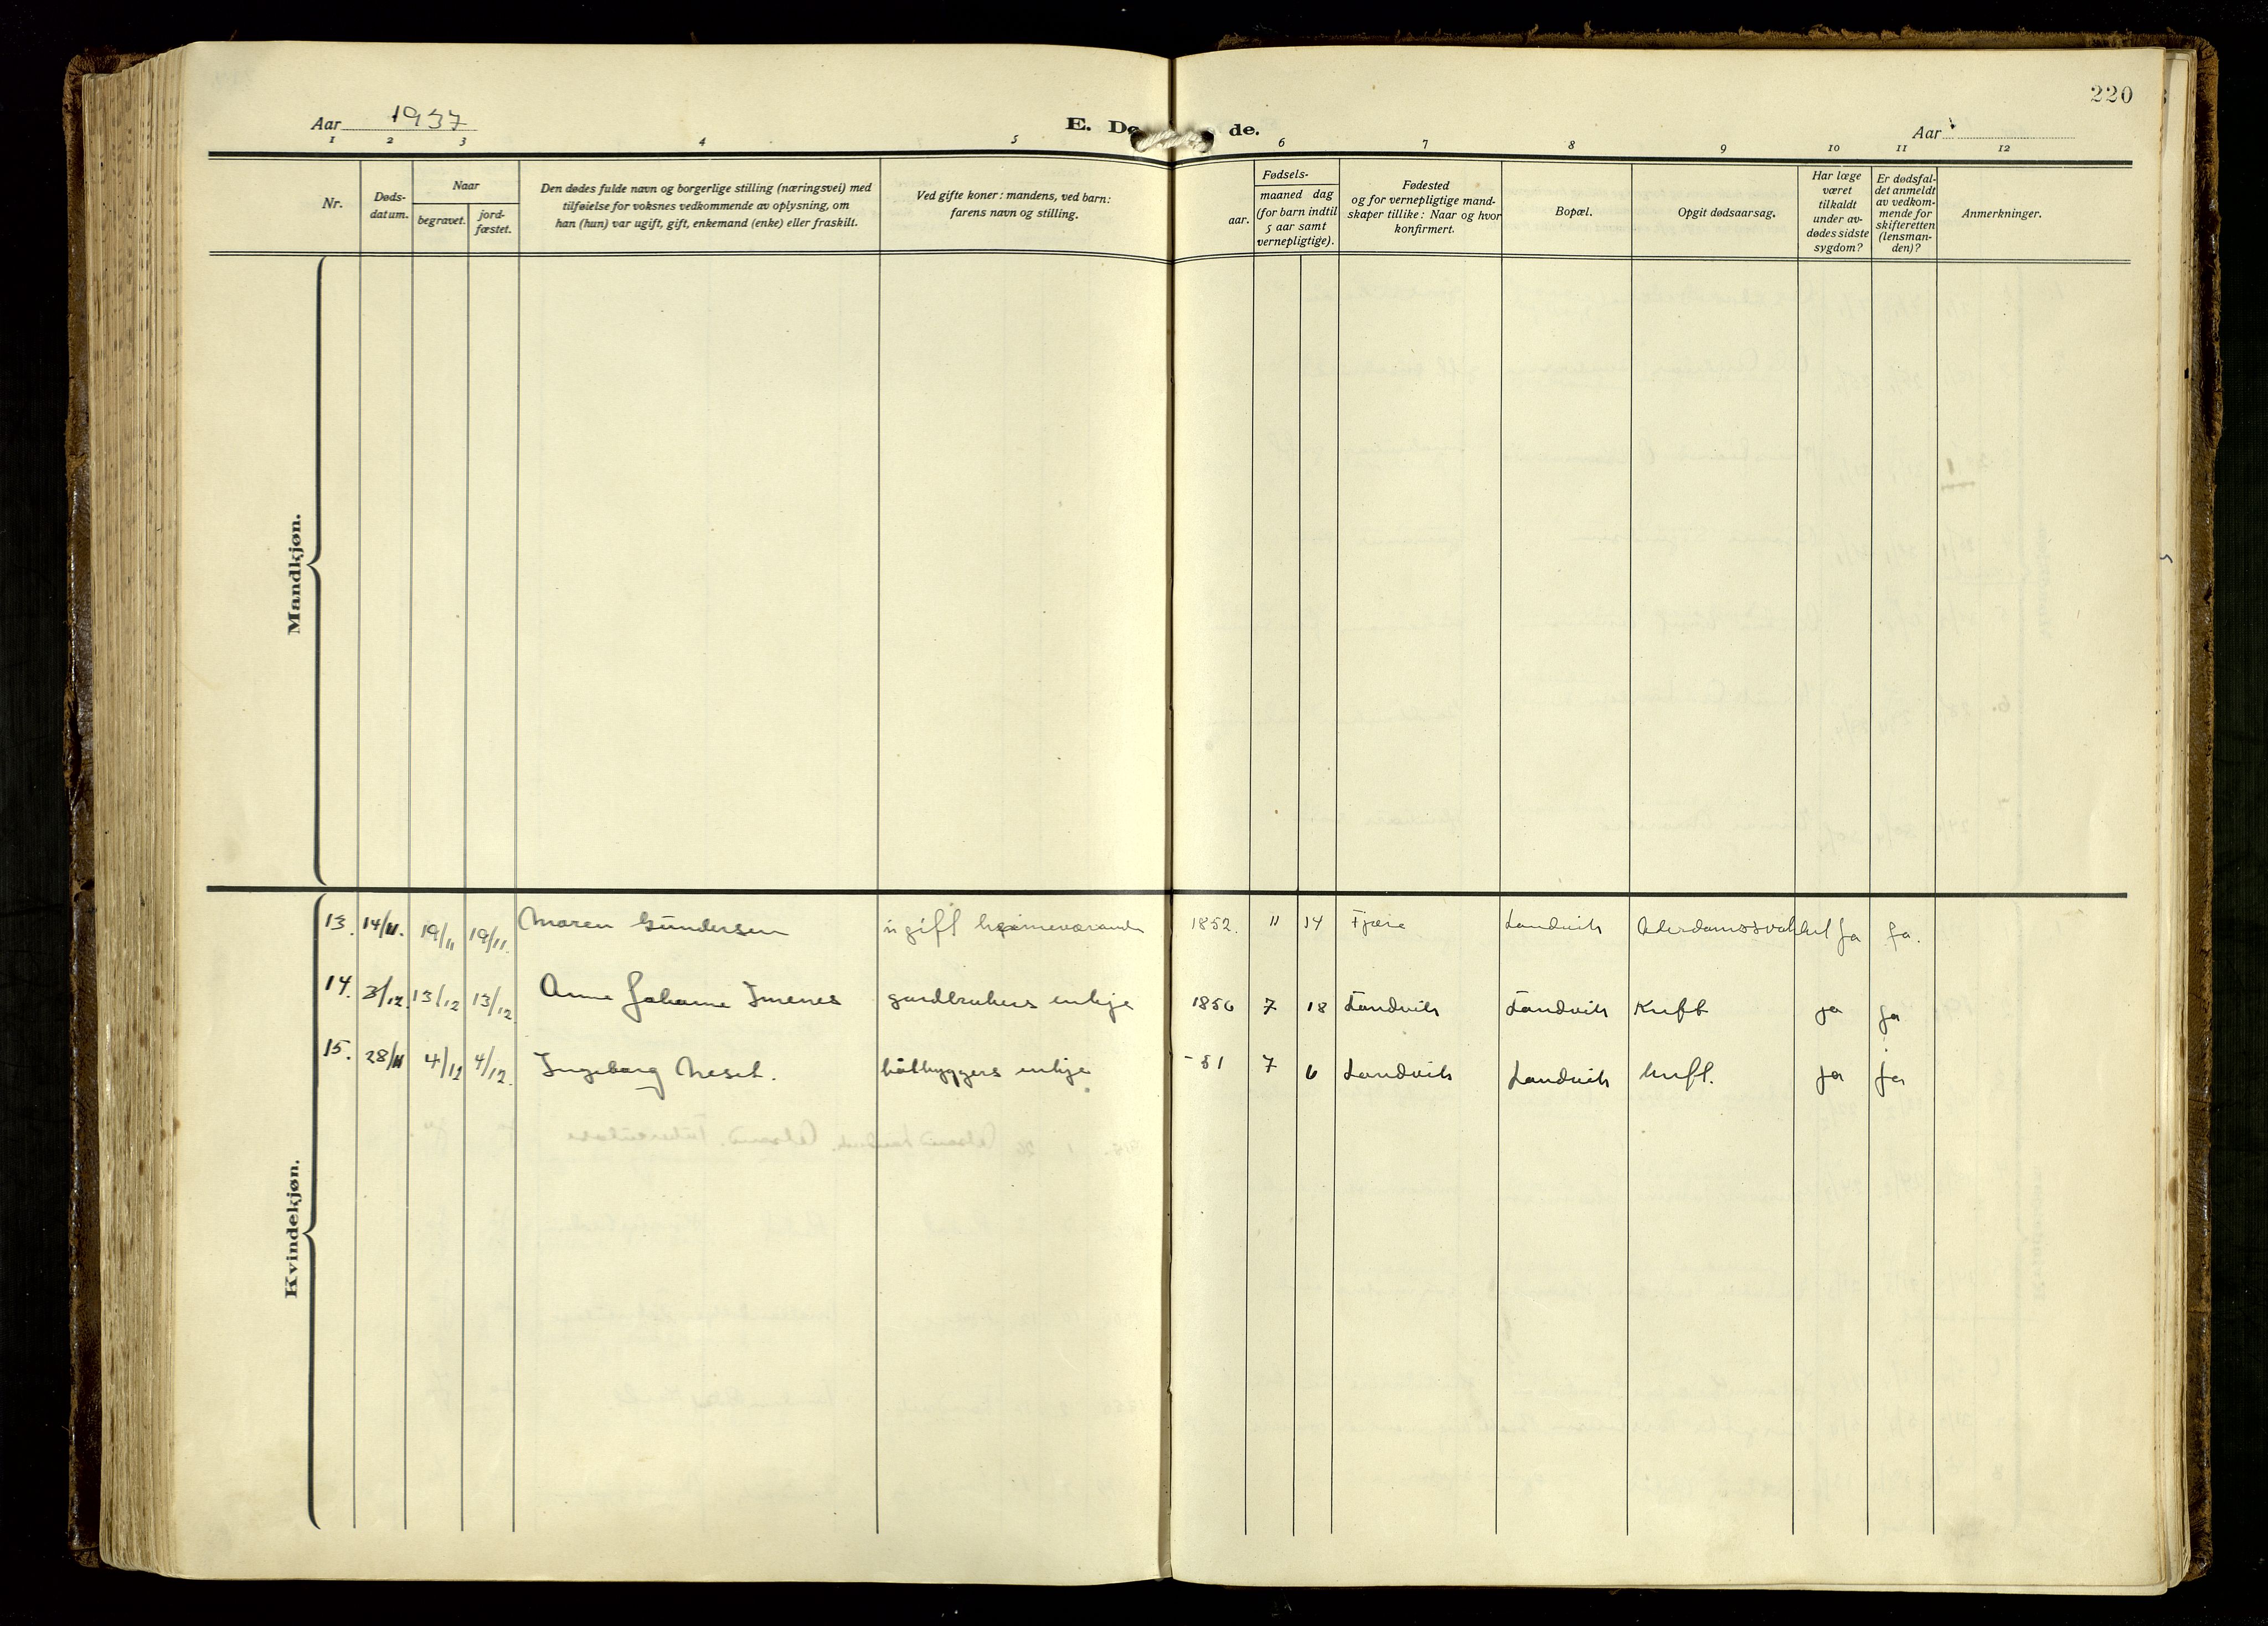 220
Aar 1937
E. Dø de.
Aar
1 2 3 4 5 6 7 8 9 10 11 12
Nr.
Døds-
datum.
Naar
begravet.
jord-
fæstet.
Den dødes fulde navn og borgerlige stilling (næringsvei) med
tilføielse for voksnes vedkommende av oplysning, om
han (hun) var ugift, gift, enkemand (enke) eller fraskilt.
Ved gifte koner: mandens, ved barn:
farens navn og stilling.
Fødsels-
aar.
maaned dag
(for barn indtil
5 aar samt
vernepligtige).
Fødested
og for vernepligtige mand-
skaper tillike: Naar og hvor
konfirmert.
Bopæl.
Opgit dødsaarsag.
Har læge
været
tilkaldt
under av-
dødes sidste
sygdom?
Er dødsfal-
det anmeldt
av vedkom-
mende for
skifteretten
(lensman-
den)?
Anmerkninger.
Mandkjøn.
Kvindekjøn.
13. 14/11. 19/11 19/11. Maren Gundersen ugift heimeværande 1852. 11 14 Fjære Landvik Alerdomssvakhet ja ja.
14. 3/12. 13/12 13/12. Anne Johanne Imenes gardbrukers enkje 1856 7 18 Landvik Landvik Kreft ja ja
15. 28/11 4/12 4/12. Ingeborg Neset. båtbyggers enkje -51 7 6 Landvik Landvik kreft. ja ja